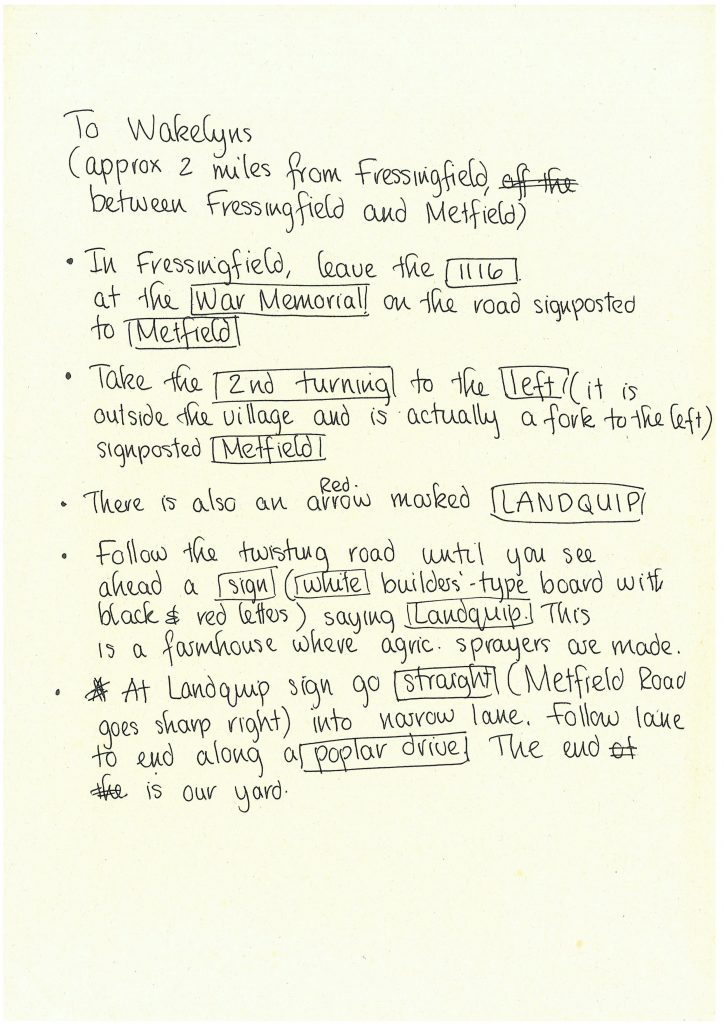 To Wakelyns
(approx 2 miles from Fressingfield, off the
between Fressingfield and Metfield)
• In Fressingfield, leave the 1116
at the War Memorial on the road signposted
to Metfield
• Take the 2nd turning to the left (it is
outside the village and is actually a fork to the left)
signposted Metfield
Red.
• There is also an arrow marked LANDQUIP
• Follow the twisting road until you see
ahead a sign (white builders'-type board with
black & red letters) saying Landquip. This
is a farmhouse where agric. sprayers are made.
• At Landquip sign go straight (Metfield Road
goes sharp right) into narrow lane. Follow lane
to end along a poplar drive. The end of
the is our yard.